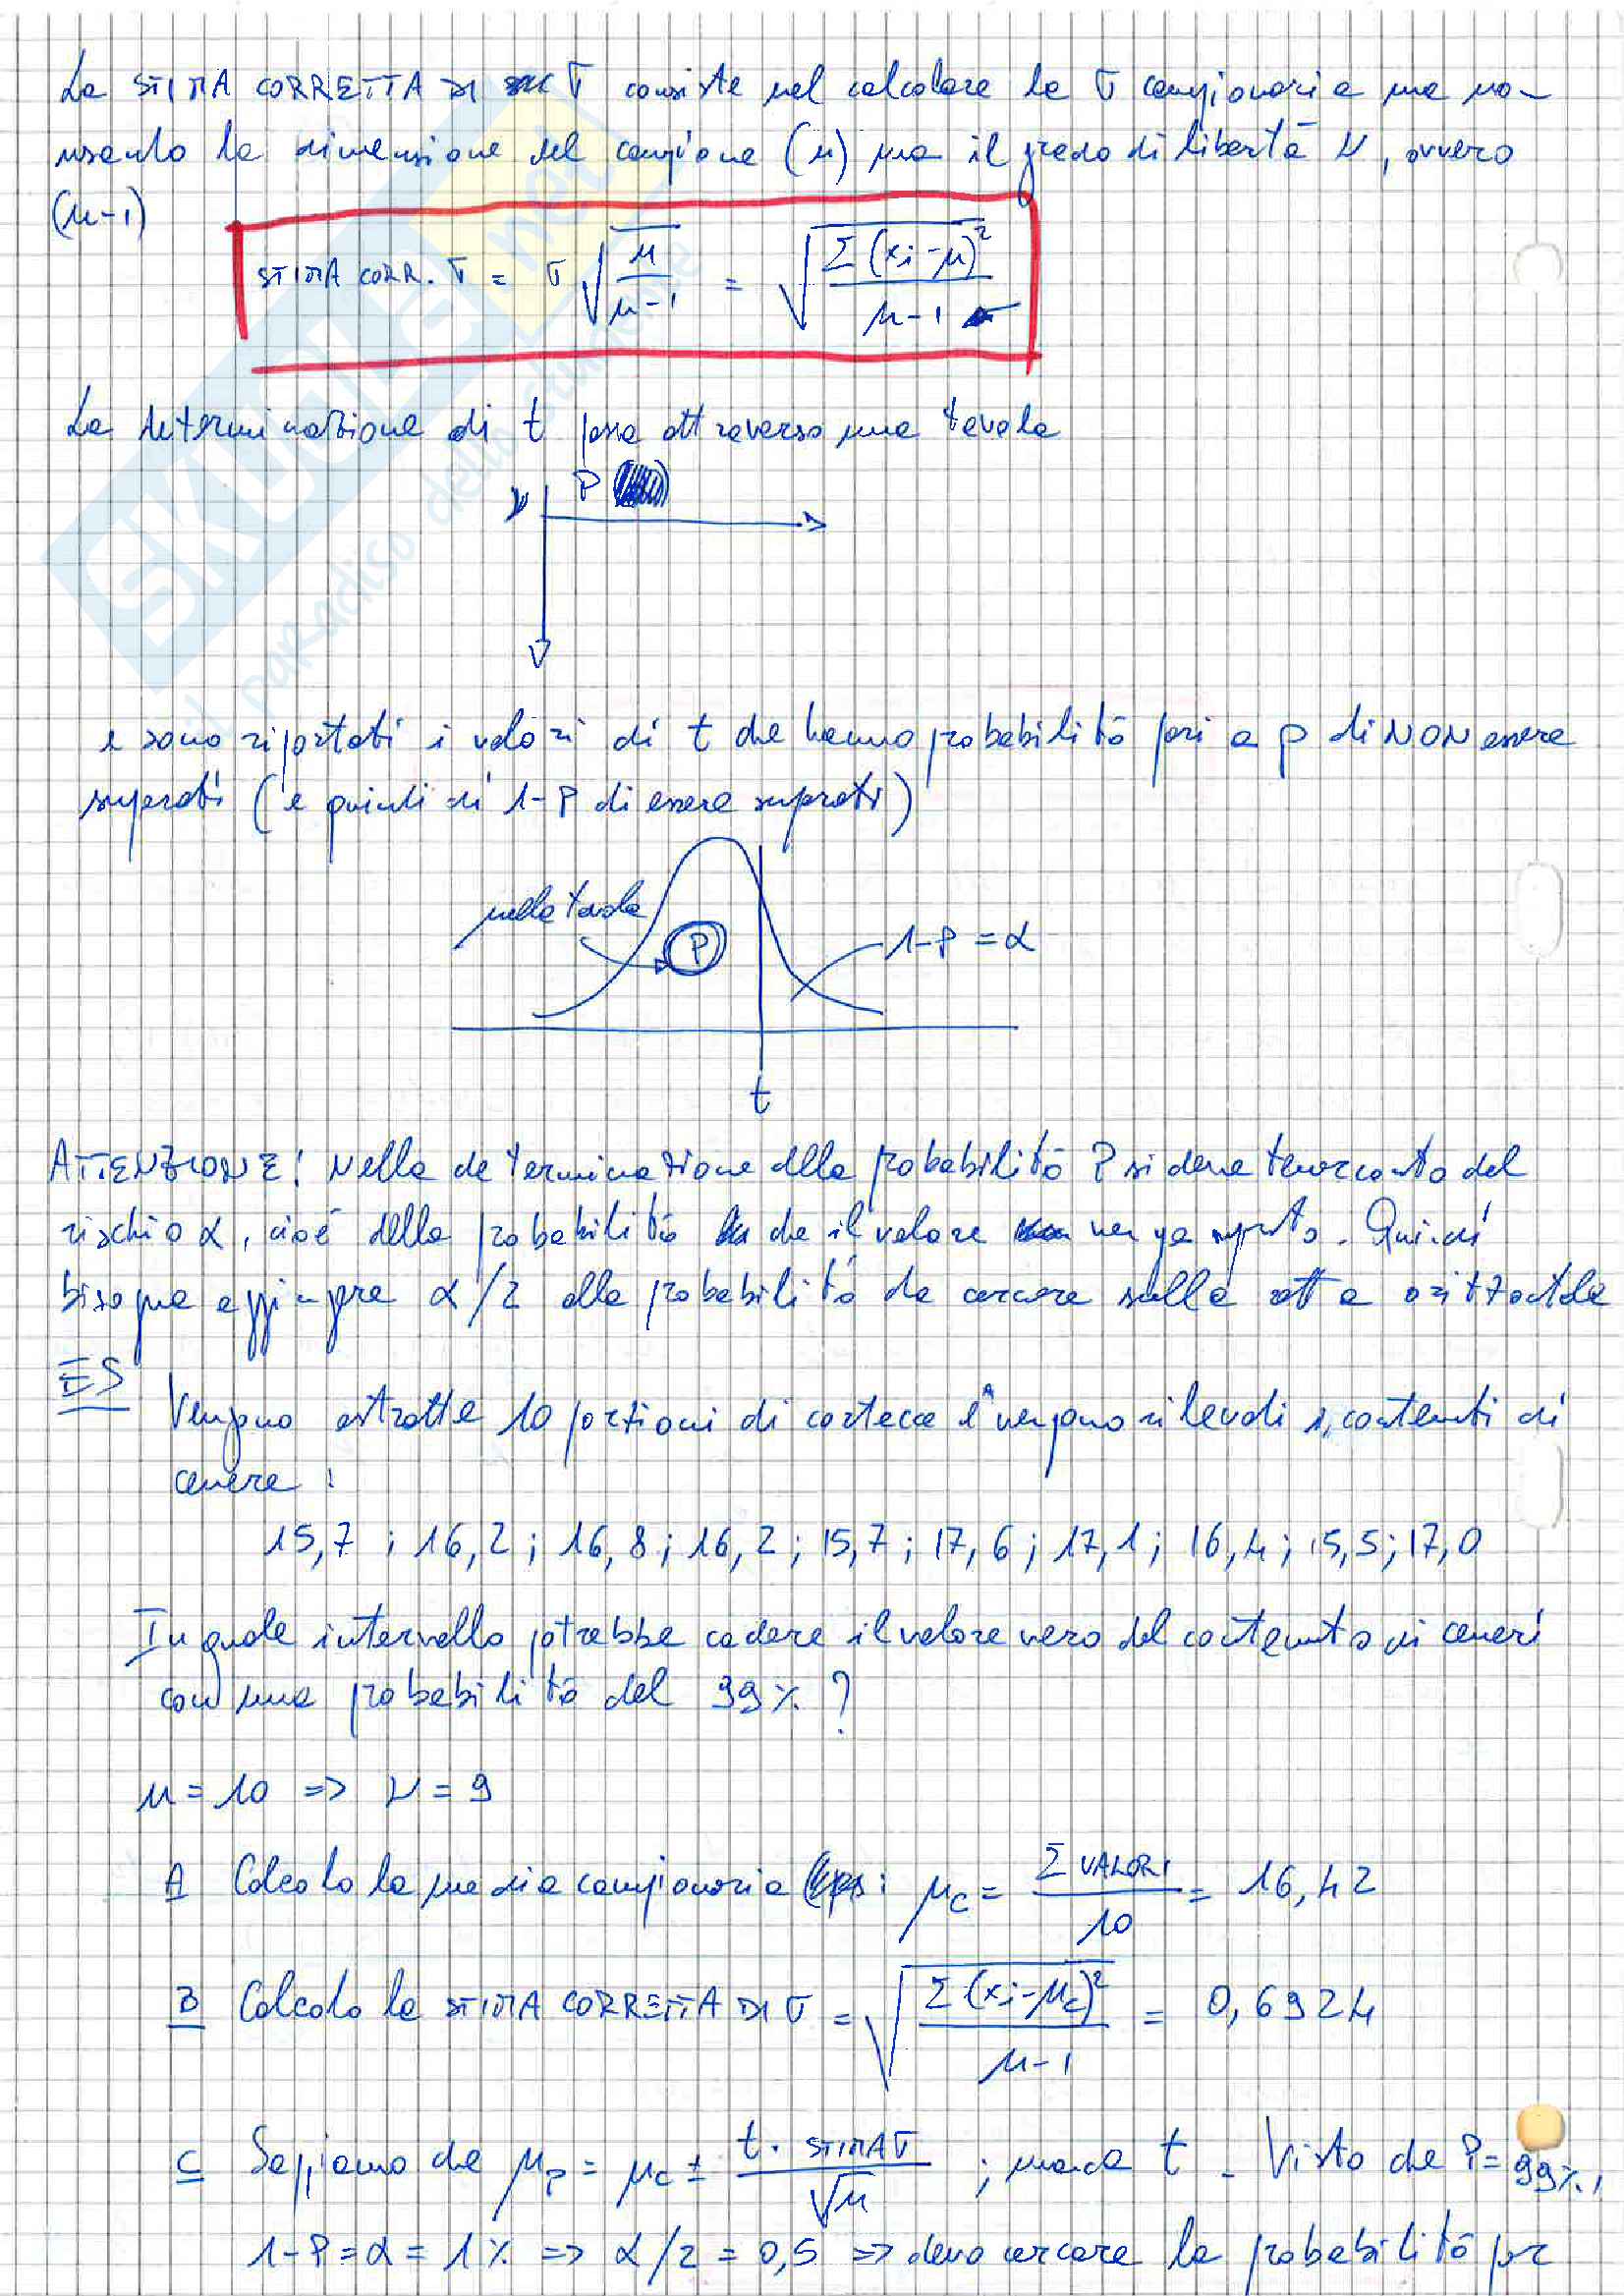 La STIMA CORRETTA DI σ consiste nel calcolare la σ campionaria ma no-
usando la dimensione del campione (n) ma il grado di libertà ν, ovvero
(n-1)
STIMA CORR. σ = σ √(n/(n-1)) = √(Σ(xi-μ)²/(n-1))
La determinazione di t passa attraverso una tavola
ν P
e sono riportati i valori di t che hanno probabilità pari a p di NON essere
superati (e quindi di 1-P di essere superati)
nella tavola
P
1-P = α
t
ATTENZIONE! Nella determinazione della probabilità P si deve tener conto del
rischio α, cioé della probabilità che il valore venga superato. Quindi
bisogna aggiungere α/2 alla probabilità da cercare sulla retta orizzontale
ES
Vengono estratte 10 porzioni di corteccia e vengono rilevati i contenuti di
cenere:
15,7 ; 16,2 ; 16,8 ; 16,2 ; 15,7 ; 17,6 ; 17,1 ; 16,4 ; 15,5 ; 17,0
In quale intervallo potrebbe cadere il valore vero del contenuto di ceneri
con una probabilità del 99% ?
n = 10 => ν = 9
A Calcolo la media campionaria : μc = Σ VALORI / 10 = 16,42
B Calcolo la STIMA CORRETTA DI σ = √(Σ(xi-μc)²/(n-1)) = 0,6924
C Sappiamo che μp = μc ± t · STIMA σ / √n ; manca t - Visto che P = 99%,
1-P = α = 1% => α/2 = 0,5 => devo cercare la probabilità per
SKUOLA.net
il paradiso dello studente